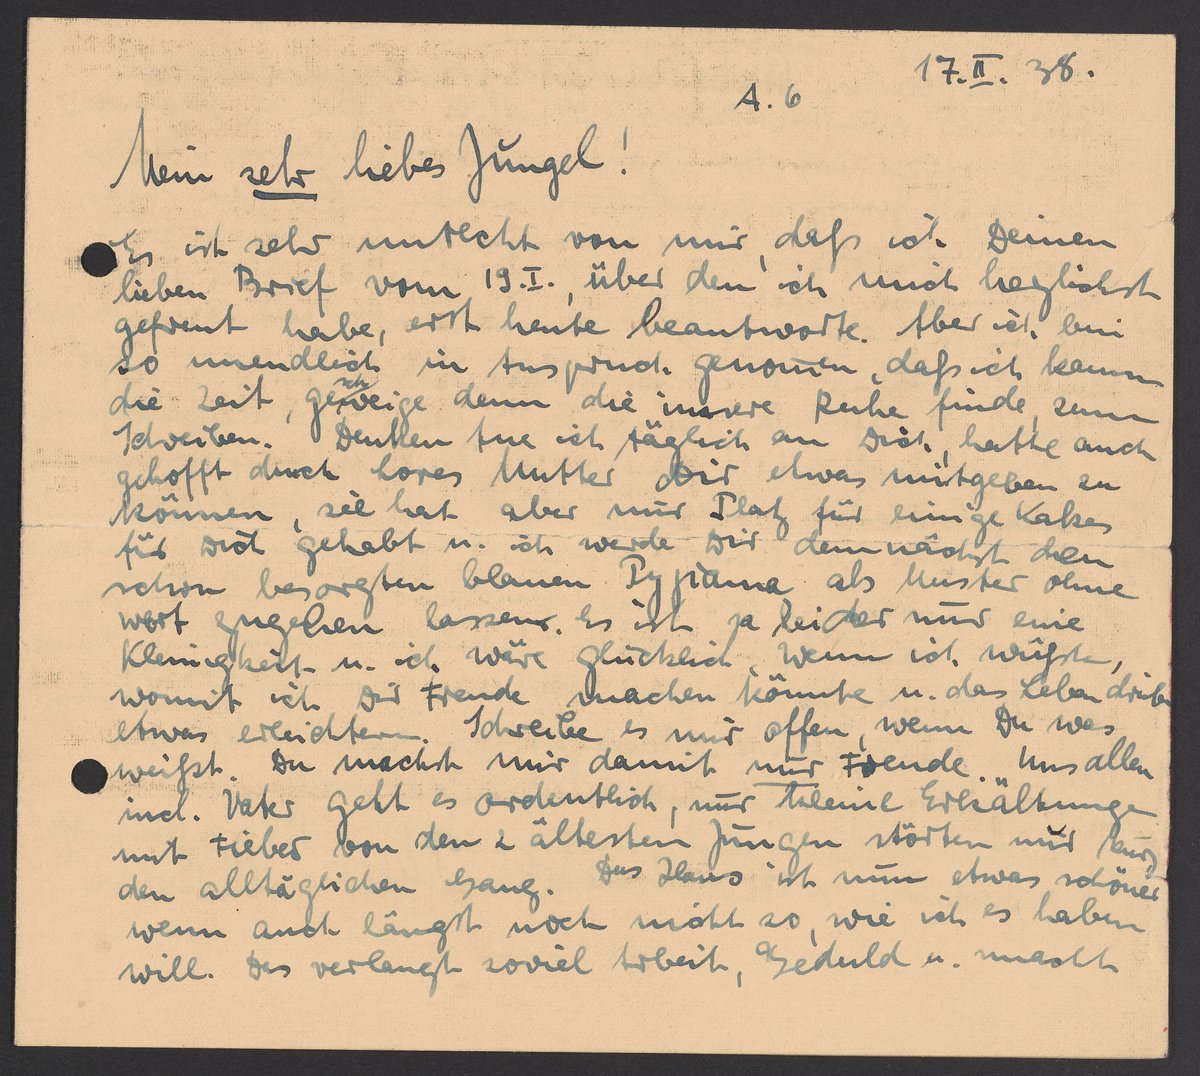 17.II. 38.
A. 6
Mein sehr liebes Jungel!
Es ist sehr unrecht von mir, daß ich Deinen
lieben Brief vom 19.I., über den ich mich herzlichst
gefreut habe, erst heute beantworte. Aber ich bin
so unendlich in Anspruch genom̅en, daß ich kaum
die Zeit, geschweige denn die innere Ruhe finde, zum
Schreiben. Denken tue ich täglich an Dich, hatte auch
gehofft durch Lores Mutter Dir etwas mitgeben zu
können, sie hat aber nur Platz für einige Kakes
für Dich gehabt u. ich werde Dir demnächst den
schon besorgten blauen Pyjama als Muster ohne
wert zugehen lassen. Es ist ja leider nur eine
Kleinigkeit u. ich wäre glücklich, wenn ich wüßte,
womit ich Dir Freude machen könnte u. das Leben drüben
etwas erleichtern. Schreibe es mir offen, wenn Du was
weißt. Du machst mir damit nur Freude. Uns allen
incl. Vater geht es ordentlich, nur kleine Erkältungen
mit Fieber von den 2 ältesten Jungen störten nur kurz
den alltäglichen Gang. Das Haus ist nun etwas schöner
wenn auch längst noch nicht so, wie ich es haben
will. Das verlangt soviel Arbeit, Geduld u. macht